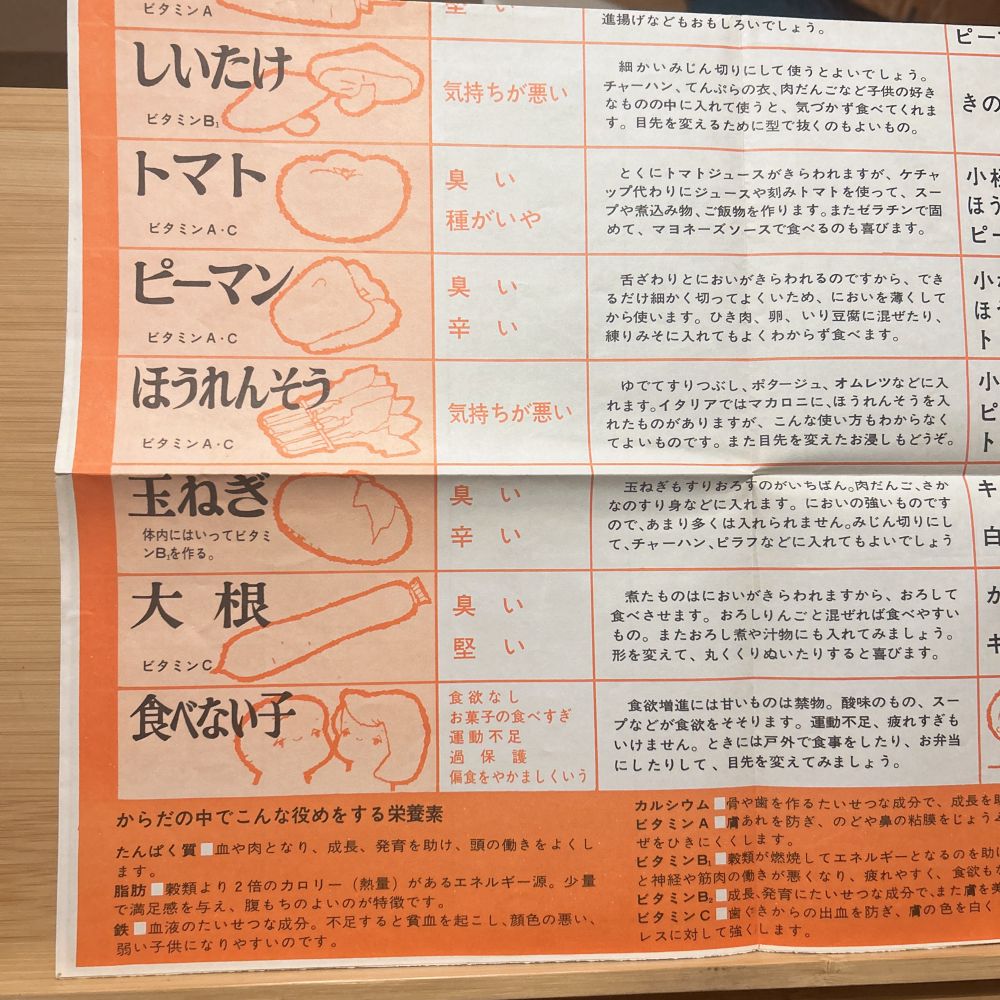 ビタミンA
堅い
進揚げなどもおもしろいでしょう。
ピーマ
しいたけ
ビタミンB₁
気持ちが悪い
細かいみじん切りにして使うとよいでしょう。
チャーハン、てんぷらの衣、肉だんごなど子供の好き
なものの中に入れて使うと、気づかず食べてくれま
す。目先を変えるために型で抜くのもよいもの。
きの
トマト
ビタミンA・C
臭い
種がいや
とくにトマトジュースがきらわれますが、ケチャ
ップ代わりにジュースや刻みトマトを使って、スー
プや煮込み物、ご飯物を作ります。またゼラチンで固
めて、マヨネーズソースで食べるのも喜びます。
小
ほう
ピー
ピーマン
ビタミンA・C
臭い
辛い
舌ざわりとにおいがきらわれるのですから、でき
るだけ細かく切ってよくいため、においを薄くして
から使います。ひき肉、卵、いり豆腐に混ぜたり、
練りみそに入れてもよくわからず食べます。
小
ほ
ト
ほうれんそう
ビタミンA・C
気持ちが悪い
ゆでてすりつぶし、ポタージュ、オムレツなどに入
れます。イタリアではマカロニに、ほうれんそうを入
れたものがありますが、こんな使い方もわからなく
てよいものです。また目先を変えたお浸しもどうぞ。
小
ピ
ト
玉ねぎ
体内にはいってビタミ
ンB₁を作る。
臭い
辛い
玉ねぎもすりおろすのがいちばん。肉だんご、さか
なのすり身などに入れます。においの強いものです
ので、あまり多くは入れられません。みじん切りにし
て、チャーハン、ピラフなどに入れてもよいでしょう
キ
白
大根
ビタミンC
臭い
堅い
煮たものはにおいがきらわれますから、おろして
食べさせます。おろしりんごと混ぜれば食べやすい
もの。またおろし煮や汁物にも入れてみましょう。
形を変えて、丸くくりぬいたりすると喜びます。
か
キ
食べない子
食欲なし
お菓子の食べすぎ
運動不足
過保護
偏食をやかましくいう
食欲増進には甘いものは禁物。酸味のもの、スー
プなどが食欲をそそります。運動不足、疲れすぎも
いけません。ときには戸外で食事をしたり、お弁当
にしたりして、目先を変えてみましょう。
からだの中でこんな役めをする栄養素
たんぱく質■血や肉となり、成長、発育を助け、頭の働きをよくし
ます。
脂肪■穀類より2倍のカロリー（熱量）があるエネルギー源。少量
で満足感を与え、腹もちのよいのが特徴です。
鉄■血液のたいせつな成分。不足すると貧血を起こし、顔色の悪い、
弱い子供になりやすいのです。
カルシウム■骨や歯を作るたいせつな成分で、成長を助
ビタミンA■膚あれを防ぎ、のどや鼻の粘膜をじょうぶ
ぜをひきにくくします。
ビタミンB₁■穀類が燃焼してエネルギーとなるのを助け
と神経や筋肉の働きが悪くなり、疲れやすく、食欲もな
ビタミンB₂■成長、発育にたいせつな成分で、また膚を美
ビタミンC■歯ぐきからの出血を防ぎ、膚の色を白く
レスに対して強くします。